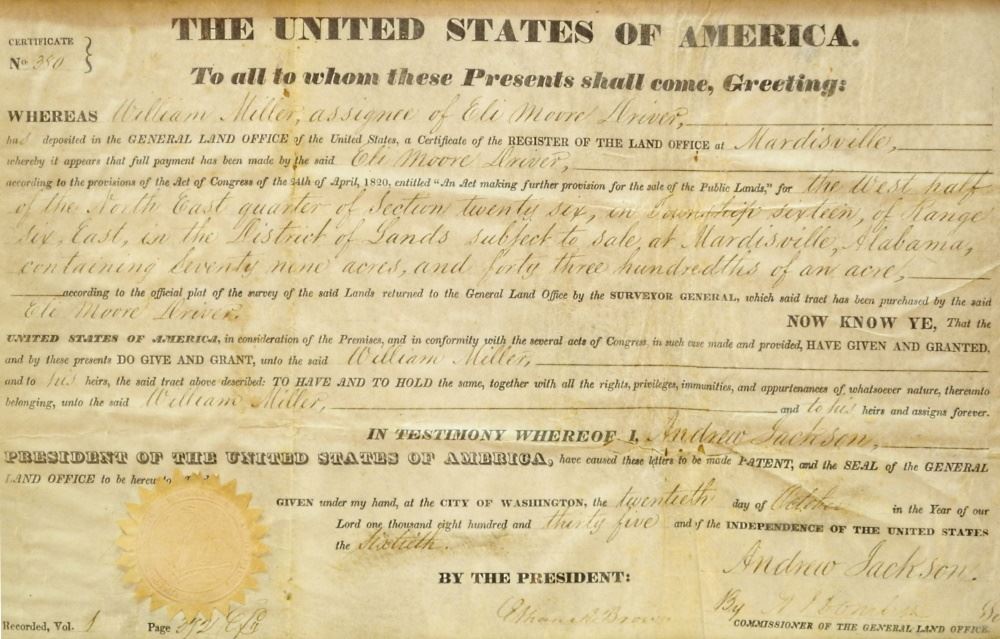 THE UNITED STATES OF AMERICA.
CERTIFICATE
No 380
To all to whom these Presents shall come, Greeting:
WHEREAS William Miller, assignee of Eli Moore Driver,
has deposited in the GENERAL LAND OFFICE of the United States, a Certificate of the REGISTER OF THE LAND OFFICE at Mardisville,
whereby it appears that full payment has been made by the said Eli Moore Driver,
according to the provisions of the Act of Congress of the 24th of April, 1820, entitled "An Act making further provision for the sale of the Public Lands," for the West half
of the North East quarter of Section twenty six, in Township sixteen, of Range
six, East, in the District of Lands subject to sale, at Mardisville, Alabama,
containing Seventy nine acres, and forty three hundredths of an acre,
according to the official plat of the survey of the said Lands returned to the General Land Office by the SURVEYOR GENERAL, which said tract has been purchased by the said
Eli Moore Driver.
NOW KNOW YE, That the
UNITED STATES OF AMERICA, in consideration of the Premises, and in conformity with the several acts of Congress, in such case made and provided, HAVE GIVEN AND GRANTED,
and by these presents DO GIVE AND GRANT, unto the said William Miller,
and to his heirs, the said tract above described: TO HAVE AND TO HOLD the same, together with all the rights, privileges, immunities, and appurtenances of whatsoever nature, thereunto
belonging, unto the said William Miller, and to his heirs and assigns forever.
IN TESTIMONY WHEREOF I, Andrew Jackson,
PRESIDENT OF THE UNITED STATES OF AMERICA, have caused these letters to be made PATENT, and the SEAL of the GENERAL
LAND OFFICE to be
GIVEN under my hand, at the CITY OF WASHINGTON, the twentieth day of October in the Year of our
Lord one thousand eight hundred and thirty five and of the INDEPENDENCE OF THE UNITED STATES
the Sixtieth.
BY THE PRESIDENT: Andrew Jackson.
By
COMMISSIONER OF THE GENERAL LAND OFFICE.
Recorded, Vol. 1 Page